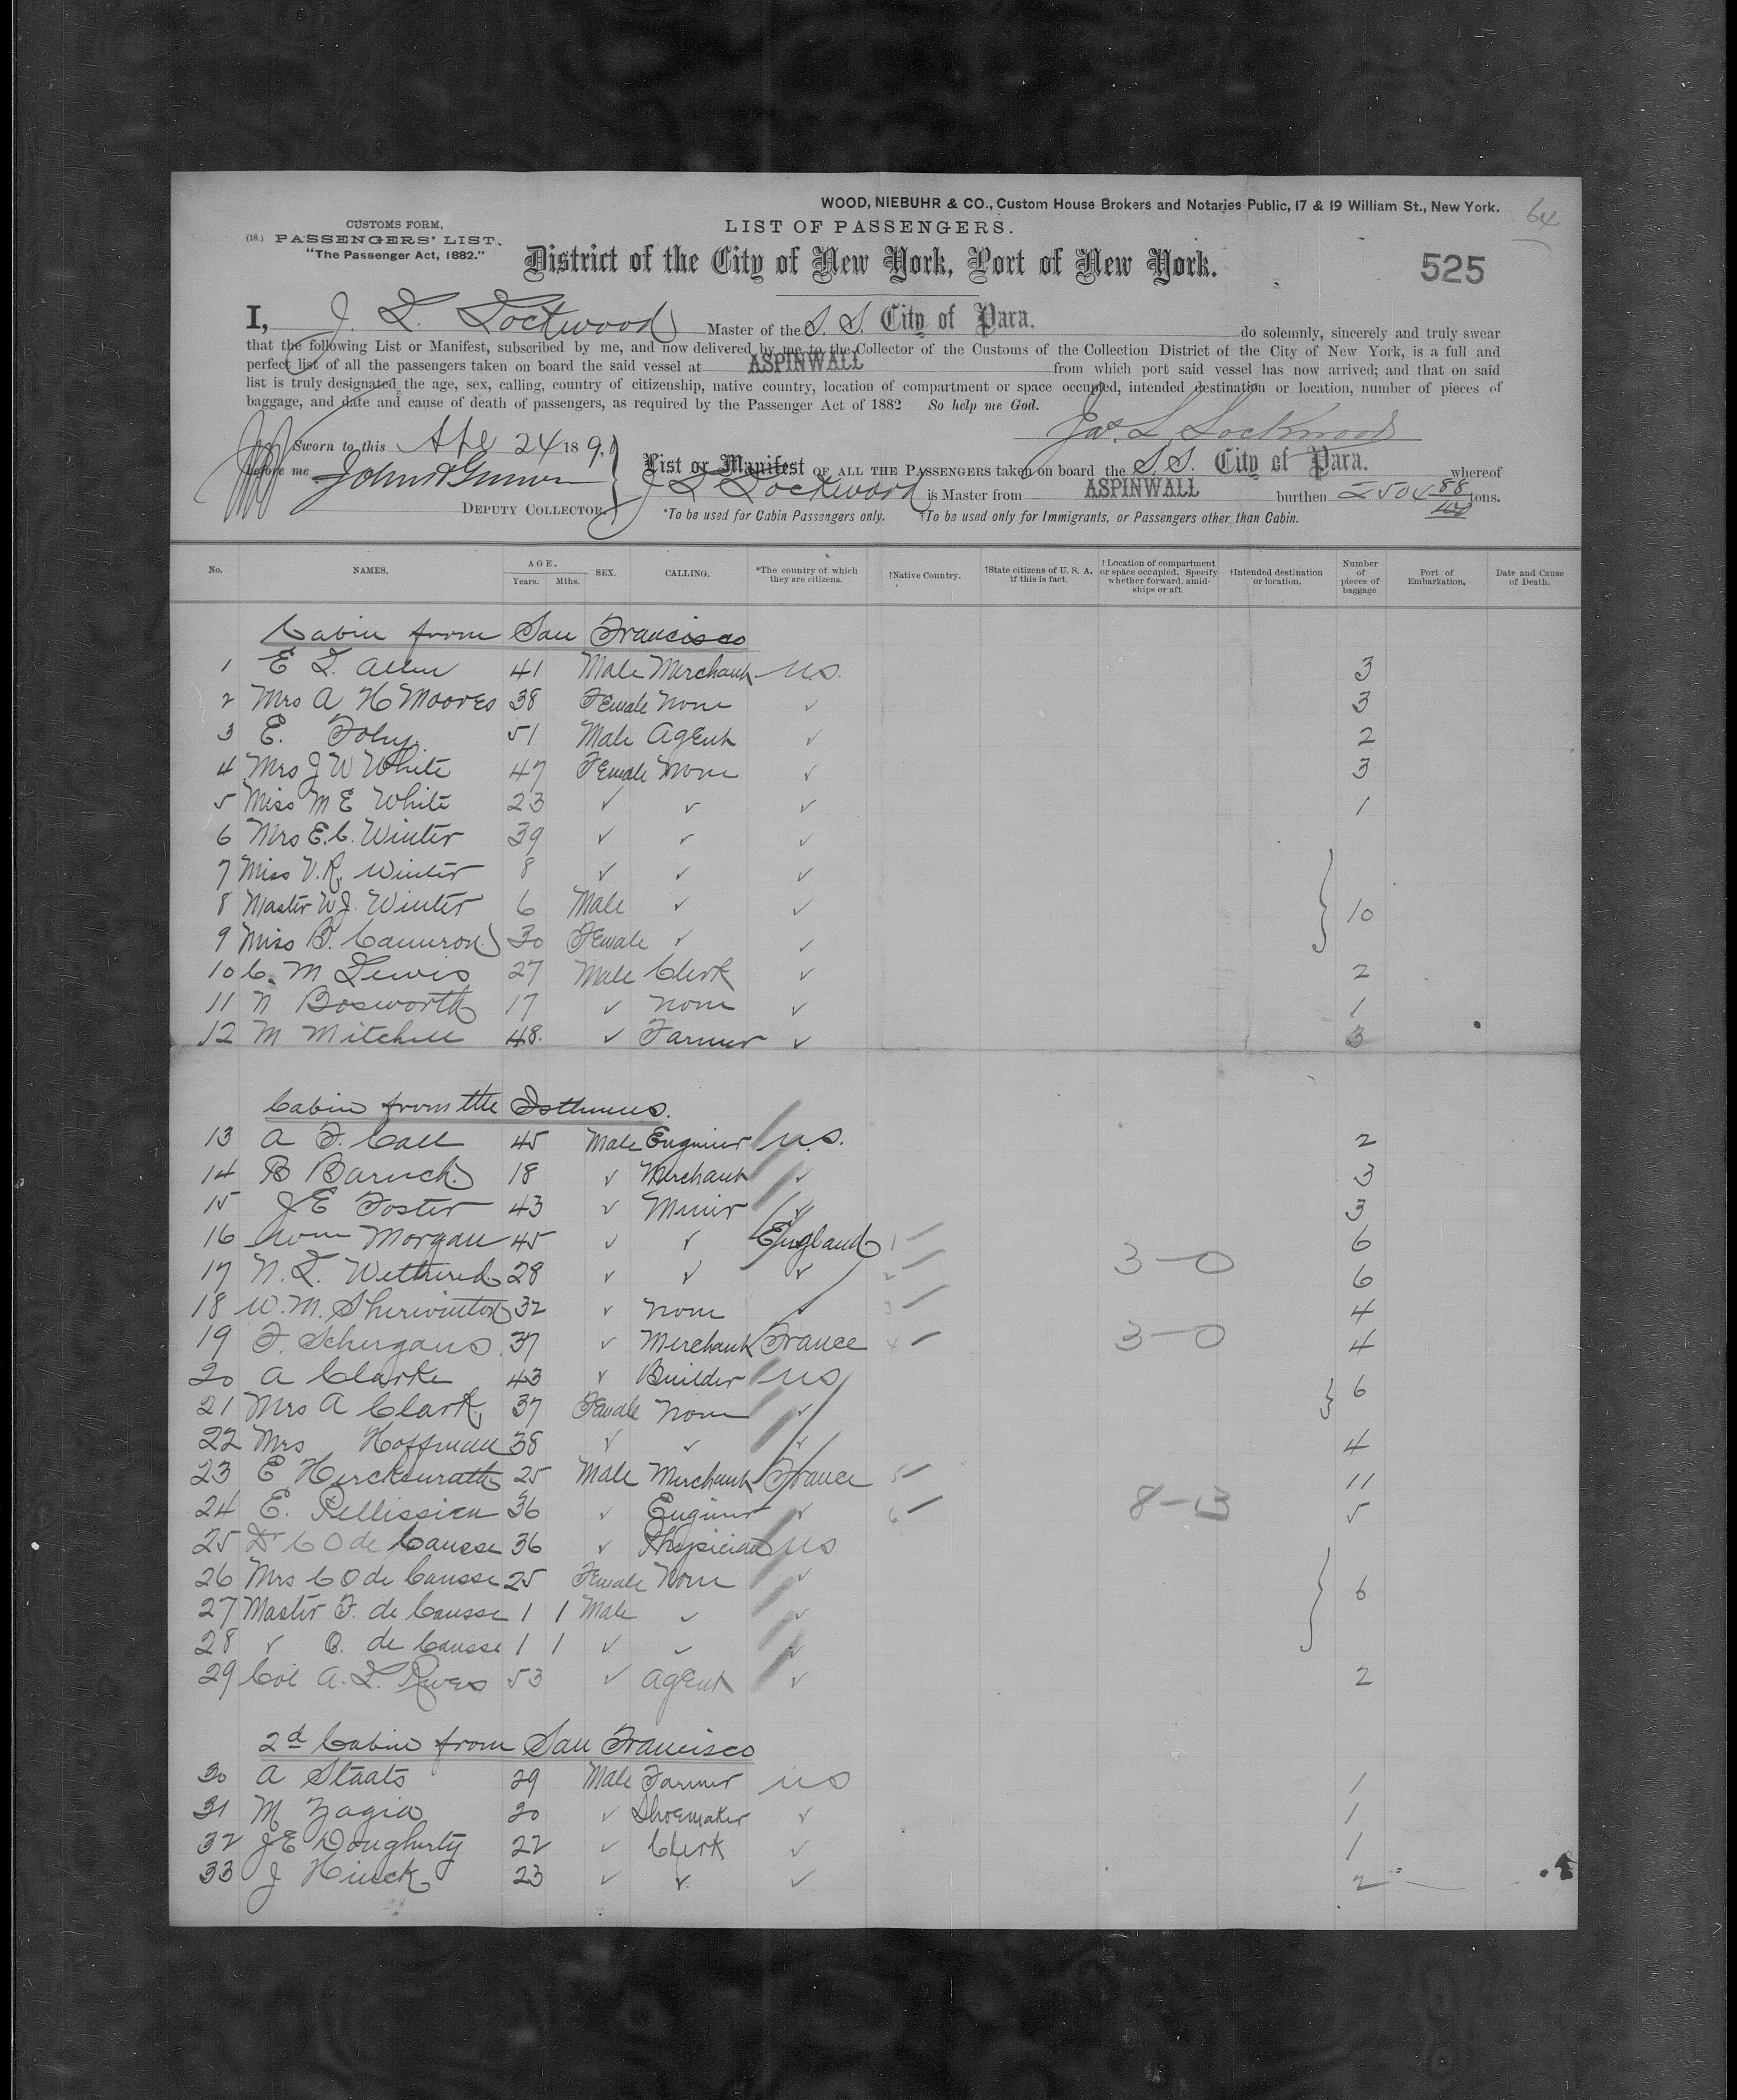 WOOD, NIEBUHR & CO., Custom House Brokers and Notaries Public, 17 & 19 William St., New York.
64
CUSTOMS FORM,
LIST OF PASSENGERS.
(18.) PASSENGERS' LIST.
"The Passenger Act, 1882."
District of the City of New York, Port of New York.
525
I, J. L. Lockwood Master of the S. S. City of Para. do solemnly, sincerely and truly swear
that the following List or Manifest, subscribed by me, and now delivered by me to the Collector of the Customs of the Collection District of the City of New York, is a full and
perfect list of all the passengers taken on board the said vessel at ASPINWALL from which port said vessel has now arrived; and that on said
list is truly designated the age, sex, calling, country of citizenship, native country, location of compartment or space occupied, intended destination or location, number of pieces of
baggage, and date and cause of death of passengers, as required by the Passenger Act of 1882 So help me God.
Jas. L. Lockwood
Sworn to this Apl 24 189,
before me
List or Manifest OF ALL THE PASSENGERS taken on board the S.S. City of Para. whereof
J L Lockwood is Master from ASPINWALL burthen 2504 88/100 tons.
DEPUTY COLLECTOR.
*To be used for Cabin Passengers only. †To be used only for Immigrants, or Passengers other than Cabin.
No. NAMES. AGE. Years. Mths. SEX. CALLING. *The country of which they are citizens. †Native Country. †State citizens of U. S. A. if this is fact. †Location of compartment or space occupied. Specify whether forward, amidships or aft. †Intended destination or location. Number of pieces of baggage Port of Embarkation. Date and Cause of Death.
Cabin from San Francisco
1 E L. Allen 41 Male Merchant U.S. 3
2 Mrs A H Moores 38 Female None ✓ 3
3 E. Foley 51 Male Agent ✓ 2
4 Mrs J W White 47 Female None ✓ 3
5 Miss M E White 23 ✓ ✓ ✓ 1
6 Mrs E.C. Winter 39 ✓ ✓ ✓
7 Miss V.R. Winter 8 ✓ ✓ ✓
8 Master W J. Winter 6 Male ✓ ✓ 10
9 Miss B. Cameron 30 Female ✓ ✓
10 C. M Lewis 27 Male Clerk ✓ 2
11 N Bosworth 17 ✓ None ✓ 1
12 M Mitchell 48. ✓ Farmer ✓ 3
Cabin from the Isthmus.
13 A F. Call 45 Male Engineer U.S. 2
14 B Baruch 18 ✓ Merchant ✓ 3
15 J E Foster 43 ✓ Miner ✓ 3
16 Wm Morgan 45 ✓ ✓ England 1 6
17 N. L. Wethered 28 ✓ ✓ ✓ 2 3-0 6
18 W. M. Sherwinton 32 ✓ None ✓ 3 4
19 F. Schergans 37 ✓ Merchant France 4 3-0 4
20 A Clarke 43 ✓ Builder US 6
21 Mrs A Clark, 37 Female None ✓
22 Mrs Hoffman 38 ✓ ✓ ✓ 4
23 E Hercksurath 25 Male Merchant France 5 11
24 E. Pellissien 36 ✓ Engineer ✓ 6 8-13 5
25 Dr C O de Causse 36 ✓ Physician US
26 Mrs C O de Causse 25 Female None ✓ 6
27 Master F. de Causse 1 1 Male ✓ ✓
28 ✓ O. de Causse 1 1 ✓ ✓ ✓
29 Col A. L. Rives 53 ✓ Agent ✓ 2
2d Cabin from San Francisco
30 A Staats 29 Male Farmer US 1
31 M Zagia 20 ✓ Shoemaker ✓ 1
32 J E Dougherty 22 ✓ Clerk ✓ 1
33 J Hinck 23 ✓ ✓ ✓ 2